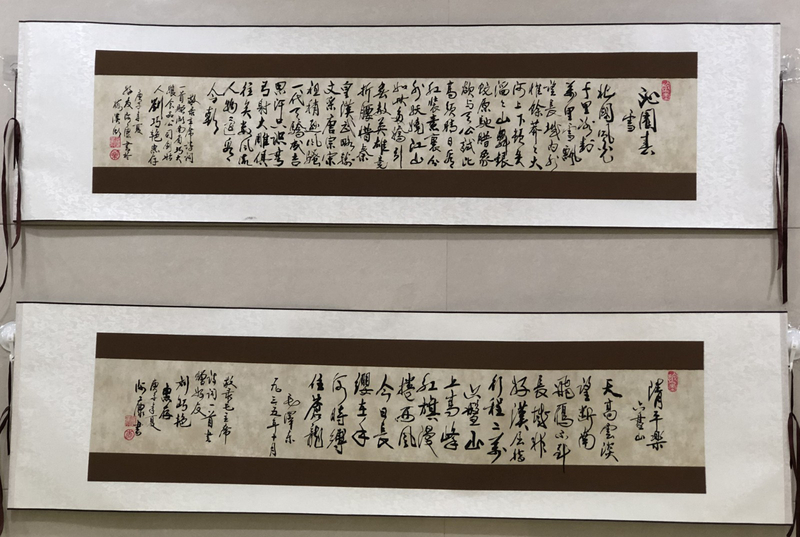 沁園春
雪
北國風光
千里冰封
萬里雪飄
望長城内外
惟餘莽莽大
河上下頓失
滔滔山舞銀
蛇原馳蠟象
欲与天公試比
高須晴日看
紅裝素裹分
外妖嬈江山
如此多嬌引
無數英雄競
折腰惜秦
皇漢武略輸
文采唐宗宋
祖稍遜風騷
一代天驕成吉
思汗只識彎
弓射大雕俱
往矣數風流
人物還看
今朝
敬录毛主席诗词
人刘巧艳惠存
庚子年夏
清平樂
六盤山
天高雲淡
望斷南
飛雁不到
長城非
好漢屈指
行程二萬
六盤山
上高峰
紅旗漫
捲西風
今日長
纓在手
何時縛
住蒼龍
毛澤东
一九三五年十月
敬录毛主席
诗词一首
贈好友
刘巧艳
惠存
庚子年夏